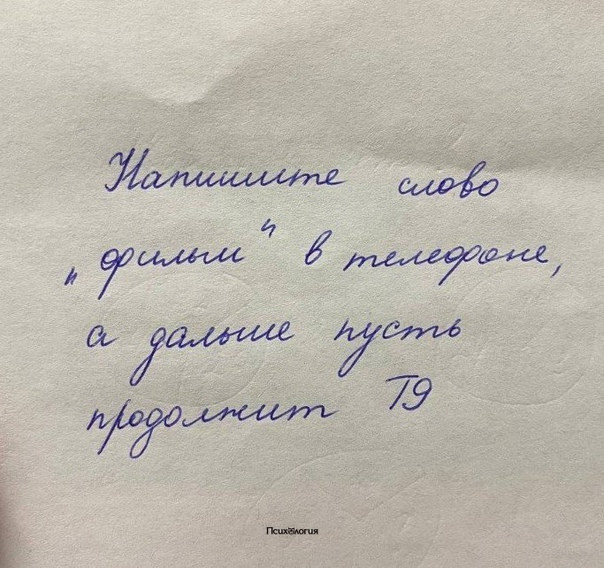 Напишите слово
„фильм" в телефоне,
а дальше пусть
продолжит Т9
Психология